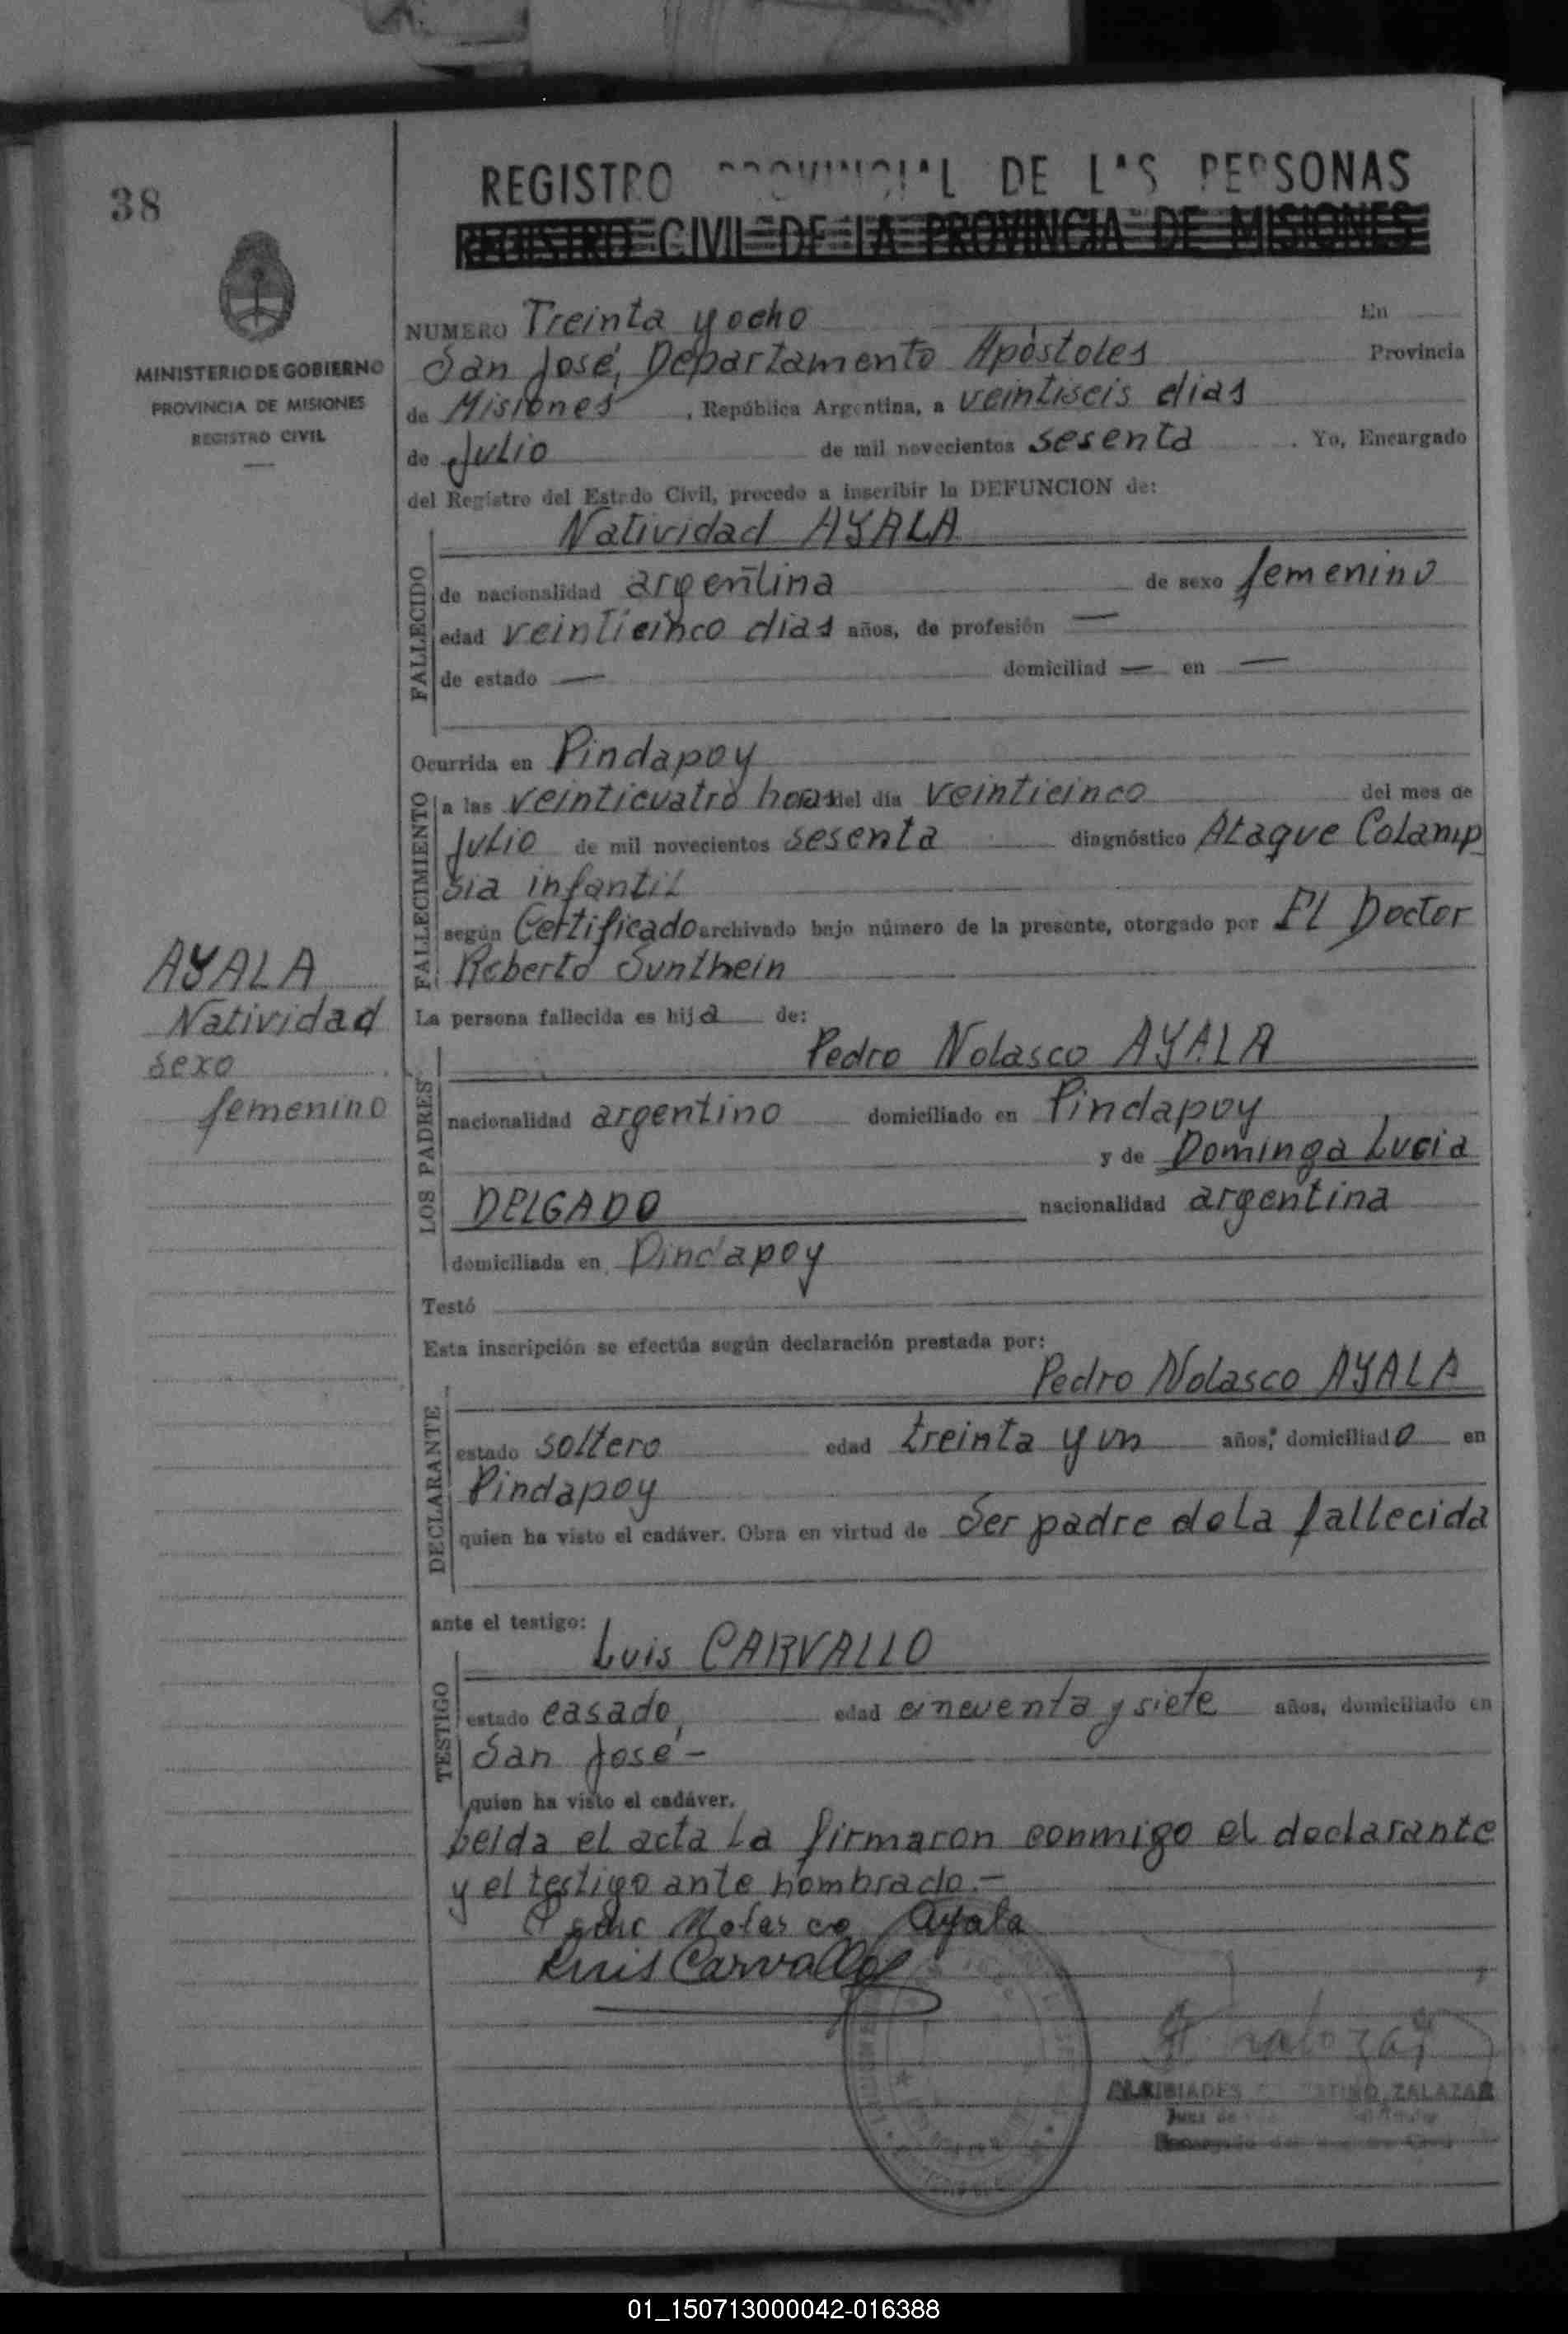 38
REGISTRO PROVINCIAL DE LAS PERSONAS
REGISTRO CIVIL DE LA PROVINCIA DE MISIONES
MINISTERIO DE GOBIERNO
PROVINCIA DE MISIONES
REGISTRO CIVIL
NUMERO Treinta y ocho En
San José, Departamento Apóstoles Provincia
de Misiones, República Argentina, a veintiseis dias
de Julio de mil novecientos sesenta. Yo, Encargado
del Registro del Estado Civil, procedo a inscribir la DEFUNCION de:
Natividad AYALA
FALLECIDO
de nacionalidad argentina de sexo femenino
edad veinticinco dias años, de profesión —
de estado — domiciliad — en —
Ocurrida en Pindapoy
FALLECIMIENTO
a las veinticuatro horas del dia veinticinco del mes de
Julio de mil novecientos sesenta diagnóstico Ataque Colamp
sia infantil
según Certificado archivado bajo número de la presente, otorgado por El Doctor
Roberto Sunthein
AYALA
Natividad
sexo
femenino
La persona fallecida es hija de:
Pedro Nolasco AYALA
LOS PADRES
nacionalidad argentino domiciliado en Pindapoy
y de Dominga Lucia
DELGADO nacionalidad argentina
domiciliada en Pindapoy
Testó
Esta inscripción se efectúa según declaración prestada por:
Pedro Nolasco AYALA
DECLARANTE
estado soltero edad treinta y un años, domiciliado en
Pindapoy
quien ha visto el cadáver. Obra en virtud de Ser padre de la fallecida
ante el testigo:
Luis CARVALLO
TESTIGO
estado casado, edad cincuenta y siete años, domiciliado en
San José -
quien ha visto el cadáver.
Leida el acta La firmaron conmigo el declarante
y el testigo ante nombrado.-
Pedro Nolasco Ayala
Luis Carvallo
ALCIBIADES ZALAZAR
Juez de
Encargado del
01_150713000042-016388